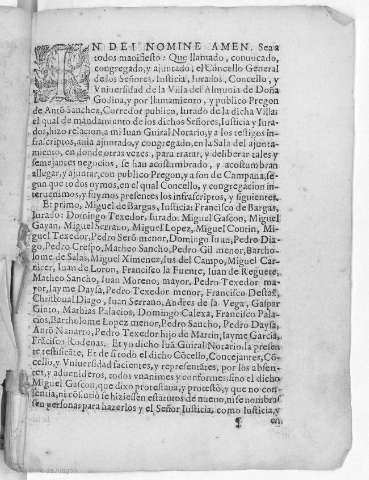 IN DEI NOMINE AMEN. Sea a
todos manifiesto: Que llamado, conuocado,
congregado, y ajuntado, el Cōcello General
de los Señores, Iusticia, Iurados, Concello, y
Vniuersidad de la Villa del Almunia de Doña
Godina, y por llamamiento, y publico Pregon
de Antō Sanchez, Corredor publico, Iurado de la dicha Villa:
el qual de mandamiento de los dichos Señores, Iusticia y Iura-
dos, hizo relacion, a mi Iuan Guiral Notario, y a los testigos in-
frascriptos, auia ajuntado, y congregado, en la Sala del ajunta-
miento, en donde otras vezes, para tratar, y deliberar tales y
semejantes negocios, se han acostumbrado, y acostumbran
allegar, y ajuntar, con publico Pregon, y a son de Campana, se-
gun que todos oymos, en el qual Concello, y congregacion in-
teruenimos, y fuymos presentes los infrascriptos, y siguientes.
Et primo, Miguel de Bargas, Iusticia: Francisco de Bargas,
Iurado: Domingo Texedor, Iurado: Miguel Gascon, Miguel
Gayan, Miguel Serrano, Miguel Lopez, Miguel Coutin, Mi-
guel Texedor, Pedro Serō menor, Domingo Iuan, Pedro Dia-
go, Pedro Crespo, Matheo Sancho, Pedro Gil menor, Bartho-
lome de Salas, Miguel Ximenez, Ius del Campo, Miguel Car-
nicer, Iuan de Loron, Francisco la Fuente, Iuan de Reguere,
Matheo Sancho, Iuan Moreno, mayor, Pedro Texedor ma-
yor, Iayme Daysa, Pedro Texedor menor, Francisco Destaß,
Christoual Diago, Iuan Serrano, Andres de la Vega, Gaspar
Ginto, Mathias Palacios, Domingo Calexa, Francisco Pala-
cios, Bartholome Lopez menor, Pedro Sancho, Pedro Daysa,
Antō Nauarro, Pedro Texedor hijo de Marcin, Iayme Garcia,
Frācisco Rodenas. Et yo dicho Iuā Guiral Notario, la presen-
te testificāte. Et de si todo el dicho Cōcello, Concejantes, Cō-
cello, y Vniuersidad facientes, y representantes, por los absen-
tes, y aduenideros, todos vnanimes y conformes; sino el dicho
Miguel Gascon, que dixo protestaua, y protestó, y que no con-
sentia, ni cōsintiō se hiziessen estatutos de nueuo, ni se nombras-
sen personas para hazerlos y el Señor Iusticia, como Iusticia, y
¶ en